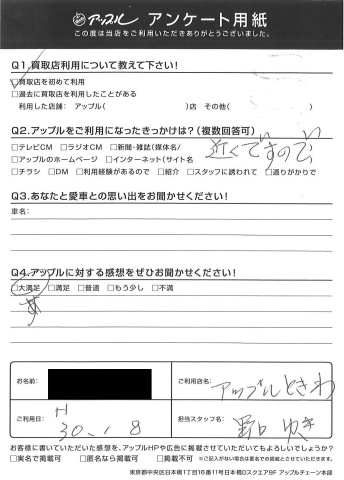 アップル アンケート用紙
この度は当店をご利用いただきありがとうございました。
Q1.買取店利用について教えて下さい!
□買取店を初めて利用
□過去に買取店を利用したことがある
利用した店舗: アップル( )店 その他( )
Q2.アップルをご利用になったきっかけは?(複数回答可)
□テレビCM □ラジオCM □新聞・雑誌(媒体名/
近くですので
□アップルのホームページ □インターネット(サイト名
□チラシ □DM □利用経験があるので □紹介 □スタッフに誘われて □通りがかりで
Q3.あなたと愛車との思い出をお聞かせください!
車名:
Q4.アップルに対する感想をぜひお聞かせください!
□大満足 □満足 □普通 □もう少し □不満
お名前:
ご利用店名:
アップルときわ
ご利用日:
H 30.1 8
担当スタッフ名:
野口 ゆき
お客様に書いていただいた感想を、アップルHPや広告に掲載させていただいてもよろしいでしょうか?
□実名で掲載可 □匿名なら掲載可 □掲載不可 ※ご記入がない場合は匿名での掲載とさせていただきます。
東京都中央区日本橋1丁目16番11号日本橋DスクエアBF アップルチェーン本部